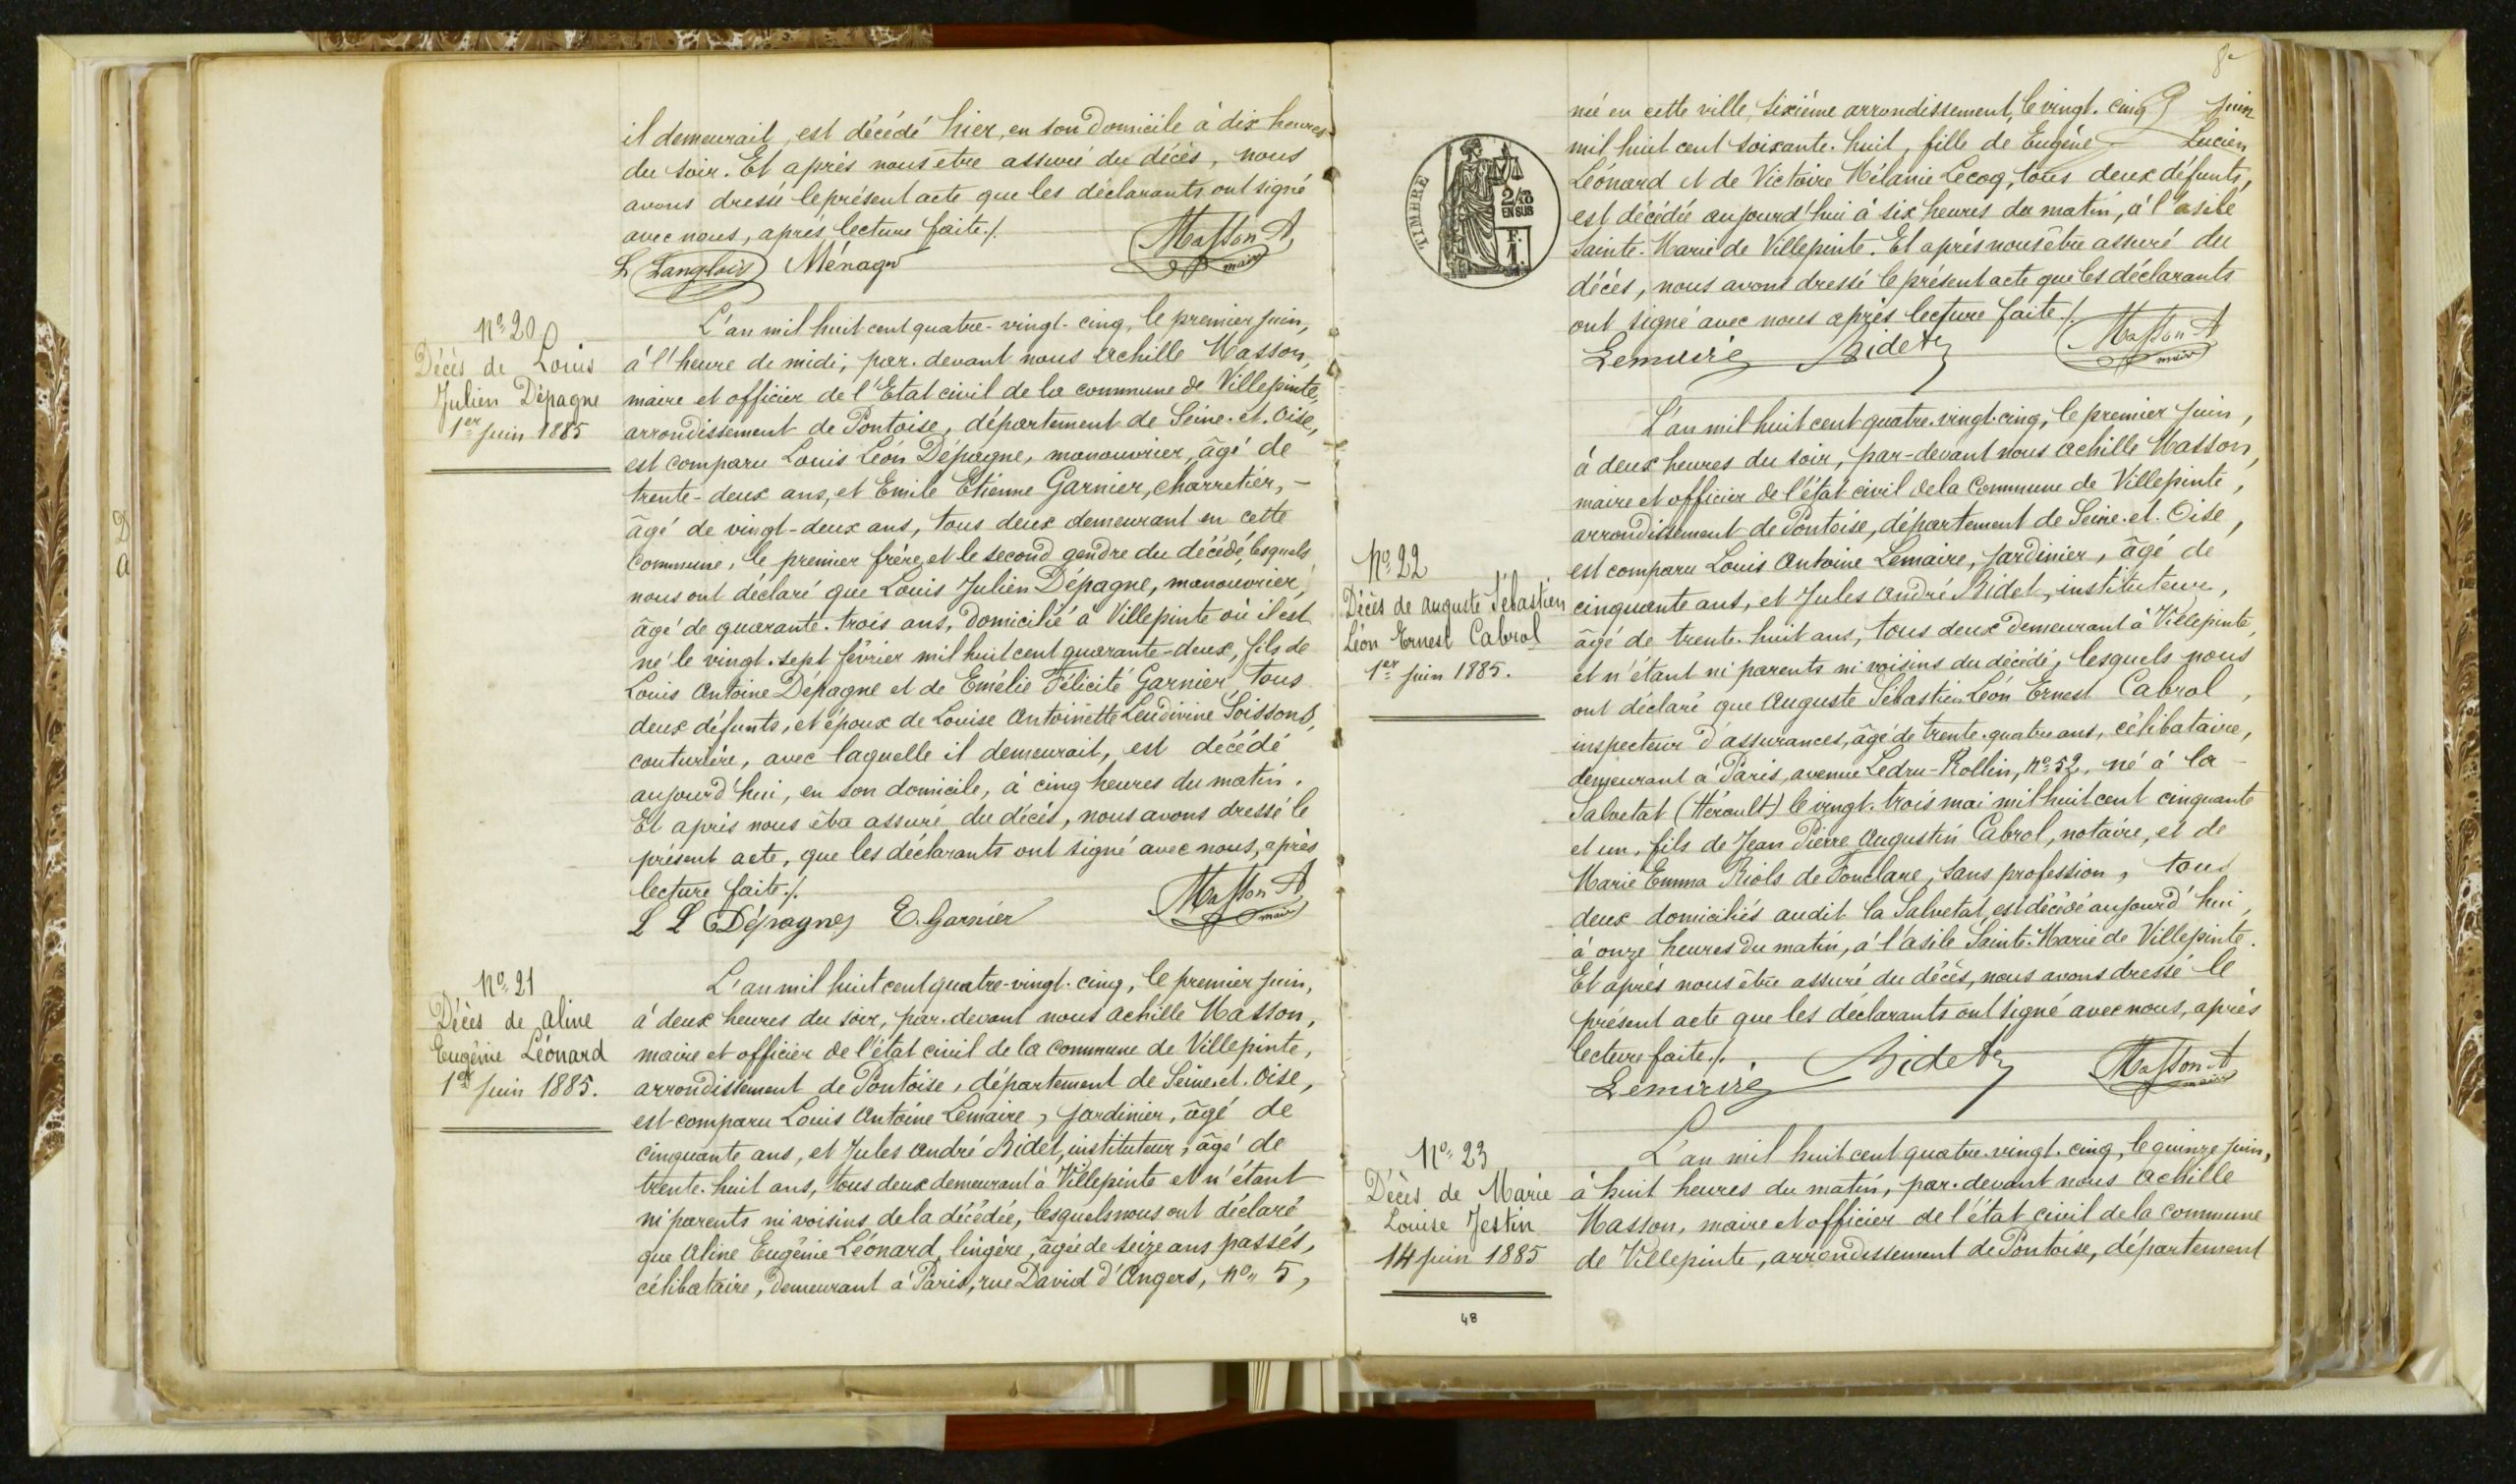 il demeurait, est décédé hier, en son domicile à dix heures
du soir. Et après nous être assuré du décès, nous
avons dressé le présent acte que les déclarants ont signé
avec nous, après lecture faite./.
L Langlois Ménage Masson A
maire
N° 20
Décès de Louis
Julien Dépagne
1er juin 1885
L'an mil huit cent quatre-vingt-cinq, le premier juin,
à l'heure de midi, par-devant nous Achille Masson,
maire et officier de l'Etat civil de la commune de Villepinte,
arrondissement de Pontoise, département de Seine-et-Oise,
est comparu Louis Léon Dépagne, manouvrier, âgé de
trente-deux ans, et Emile Etienne Garnier, charretier, -
âgé de vingt-deux ans, tous deux demeurant en cette
commune, le premier frère, et le second gendre du décédé, lesquels
nous ont déclaré que Louis Julien Dépagne, manouvrier,
âgé de quarante-trois ans, domicilié à Villepinte où il est
né le vingt-sept février mil huit cent quarante-deux, fils de
Louis Antoine Dépagne et de Emélie Félicité Garnier, tous
deux défunts, et époux de Louise Antoinette Leudivine Soissons,
couturière, avec laquelle il demeurait, est décédé
aujourd'hui, en son domicile, à cinq heures du matin.
Et après nous être assuré du décès, nous avons dressé le
présent acte, que les déclarants ont signé avec nous, après
lecture faite./.
L L Dépagne E. Garnier Masson A
maire
N° 21
Décès de Aline
Eugénie Léonard
1er juin 1885.
L'an mil huit cent quatre-vingt-cinq, le premier juin,
à deux heures du soir, par-devant nous Achille Masson,
maire et officier de l'état civil de la commune de Villepinte,
arrondissement de Pontoise, département de Seine-et-Oise,
est comparu Louis Antoine Lemaire, jardinier, âgé de
cinquante ans, et Jules André Bidet, instituteur, âgé de
trente-huit ans, tous deux demeurant à Villepinte et n'étant
ni parents ni voisins de la décédée, lesquels nous ont déclaré
que Aline Eugénie Léonard, lingère, âgée de seize ans passés,
célibataire, demeurant à Paris, rue David d'Angers, n° 5,
8e
TIMBRE
2/10
EN SUS
F.
1.
née en cette ville, sixième arrondissement, le vingt-cinq juin
mil huit cent soixante-huit, fille de Eugène Lucien
Léonard et de Victoire Mélanie Lecoq, tous deux défunts,
est décédée aujourd'hui à six heures du matin, à l'asile
Sainte-Marie de Villepinte. Et après nous être assuré du
décès, nous avons dressé le présent acte que les déclarants
ont signé avec nous après lecture faite./.
Lemaire Bidet Masson A
maire
N° 22
Décès de Auguste Sébastien
Léon Ernest Cabrol
1er juin 1885.
L'an mil huit cent quatre-vingt-cinq, le premier juin,
à deux heures du soir, par-devant nous Achille Masson,
maire et officier de l'état civil de la Commune de Villepinte,
arrondissement de Pontoise, département de Seine-et-Oise,
est comparu Louis Antoine Lemaire, jardinier, âgé de
cinquante ans, et Jules André Bidet, instituteur,
âgé de trente-huit ans, tous deux demeurant à Villepinte,
et n'étant ni parents ni voisins du décédé, lesquels nous
ont déclaré que Auguste Sébastien Léon Ernest Cabrol,
inspecteur d'assurances, âgé de trente-quatre ans, célibataire,
demeurant à Paris, avenue Ledru-Rollin, n° 52, né à la -
Salvetat (Hérault) le vingt-trois mai mil huit cent cinquante
et un, fils de Jean Pierre Augustin Cabrol, notaire, et de
Marie Emma Riols de Fonclare, sans profession, tous
deux domiciliés audit la Salvetat, est décédé aujourd'hui,
à onze heures du matin, à l'asile Sainte-Marie de Villepinte.
Et après nous être assuré du décès, nous avons dressé le
présent acte que les déclarants ont signé avec nous, après
lecture faite./.
Lemaire Bidet Masson A
maire
N° 23
Décès de Marie
Louise Jestin
14 juin 1885
L'an mil huit cent quatre-vingt-cinq, le quinze juin,
à huit heures du matin, par-devant nous Achille
Masson, maire et officier de l'état civil de la commune
de Villepinte, arrondissement de Pontoise, département
48
D
A